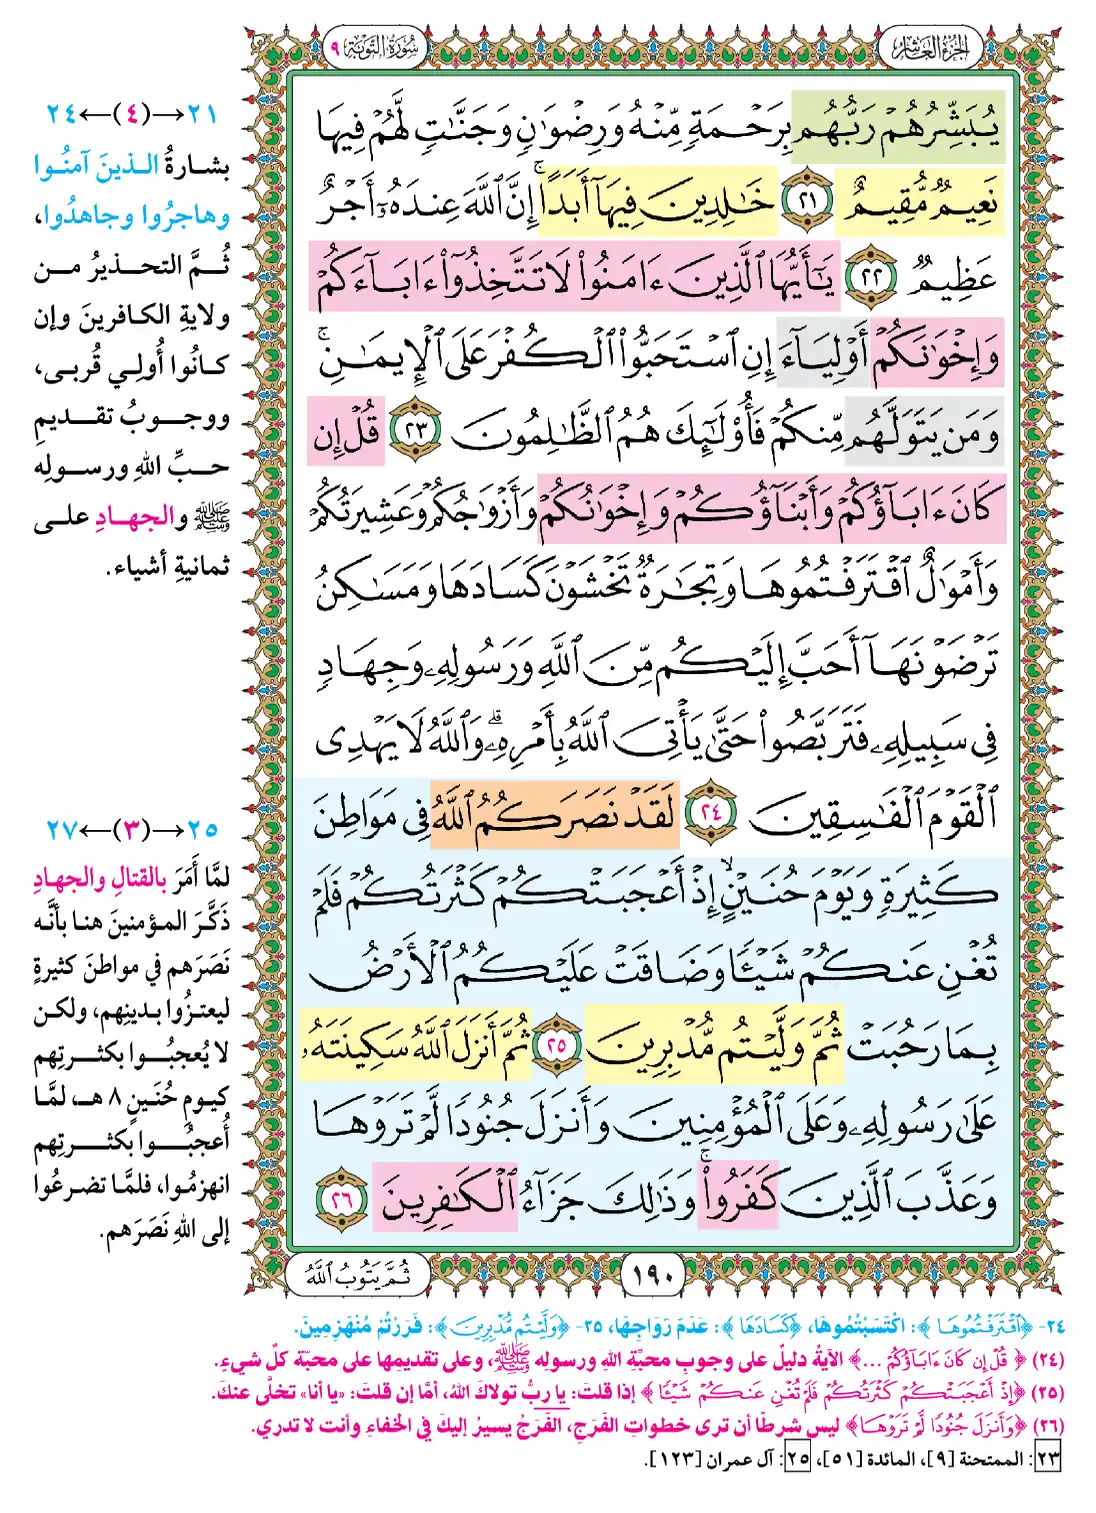 الجزء العاشر
سورة التوبة ٩
يُبَشِّرُهُمْ رَبُّهُم بِرَحْمَةٍ مِّنْهُ وَرِضْوَٰنٍ وَجَنَّٰتٍ لَّهُمْ فِيهَا
نَعِيمٌ مُّقِيمٌ ٢١ خَٰلِدِينَ فِيهَآ أَبَدًا ۚ إِنَّ ٱللَّهَ عِندَهُۥٓ أَجْرٌ
عَظِيمٌ ٢٢ يَٰٓأَيُّهَا ٱلَّذِينَ ءَامَنُوا۟ لَا تَتَّخِذُوٓا۟ ءَابَآءَكُمْ
وَإِخْوَٰنَكُمْ أَوْلِيَآءَ إِنِ ٱسْتَحَبُّوا۟ ٱلْكُفْرَ عَلَى ٱلْإِيمَٰنِ ۚ
وَمَن يَتَوَلَّهُم مِّنكُمْ فَأُو۟لَٰٓئِكَ هُمُ ٱلظَّٰلِمُونَ ٢٣ قُلْ إِن
كَانَ ءَابَآؤُكُمْ وَأَبْنَآؤُكُمْ وَإِخْوَٰنُكُمْ وَأَزْوَٰجُكُمْ وَعَشِيرَتُكُمْ
وَأَمْوَٰلٌ ٱقْتَرَفْتُمُوهَا وَتِجَٰرَةٌ تَخْشَوْنَ كَسَادَهَا وَمَسَٰكِنُ
تَرْضَوْنَهَآ أَحَبَّ إِلَيْكُم مِّنَ ٱللَّهِ وَرَسُولِهِۦ وَجِهَادٍ
فِى سَبِيلِهِۦ فَتَرَبَّصُوا۟ حَتَّىٰ يَأْتِىَ ٱللَّهُ بِأَمْرِهِۦ ۗ وَٱللَّهُ لَا يَهْدِى
ٱلْقَوْمَ ٱلْفَٰسِقِينَ ٢٤ لَقَدْ نَصَرَكُمُ ٱللَّهُ فِى مَوَاطِنَ
كَثِيرَةٍ ۙ وَيَوْمَ حُنَيْنٍ ۙ إِذْ أَعْجَبَتْكُمْ كَثْرَتُكُمْ فَلَمْ
تُغْنِ عَنكُمْ شَيْـًٔا وَضَاقَتْ عَلَيْكُمُ ٱلْأَرْضُ
بِمَا رَحُبَتْ ثُمَّ وَلَّيْتُم مُّدْبِرِينَ ٢٥ ثُمَّ أَنزَلَ ٱللَّهُ سَكِينَتَهُۥ
عَلَىٰ رَسُولِهِۦ وَعَلَى ٱلْمُؤْمِنِينَ وَأَنزَلَ جُنُودًا لَّمْ تَرَوْهَا
وَعَذَّبَ ٱلَّذِينَ كَفَرُوا۟ ۚ وَذَٰلِكَ جَزَآءُ ٱلْكَٰفِرِينَ ٢٦
١٩٠
ثُمَّ يَتُوبُ ٱللَّهُ
٢١→(٤)←٢٤
بشارةُ الذينَ آمنُوا
وهاجرُوا وجاهدُوا،
ثُمَّ التحذيرُ من
ولايةِ الكافرينَ وإن
كانُوا أُولِي قُربى،
ووجوبُ تقديمِ
حبِّ اللهِ ورسولِه
ﷺ والجهادِ على
ثمانيةِ أشياء.
٢٥→(٣)←٢٧
لمَّا أَمَرَ بالقتالِ والجهادِ
ذَكَّرَ المؤمنينَ هنا بأنَّه
نَصَرَهم في مواطنَ كثيرةٍ
ليعتزُوا بدينِهم، ولكن
لا يُعجبُوا بكثرتِهم
كيومِ حُنَينٍ ٨ هـ، لمَّا
أُعجبُوا بكثرتِهم
انهزمُوا، فلمَّا تضرعُوا
إلى اللهِ نَصَرَهم.
٢٤- ﴿ٱقْتَرَفْتُمُوهَا﴾: اكْتَسَبْتُمُوهَا، ﴿كَسَادَهَا﴾: عَدَمَ رَوَاجِهَا، ٢٥- ﴿وَلَّيْتُم مُّدْبِرِينَ﴾: فَرَرْتُمْ مُنْهَزِمِينَ.
(٢٤) ﴿قُلْ إِن كَانَ ءَابَآؤُكُمْ ...﴾ الآيةُ دليلٌ على وجوبِ محبَّةِ اللهِ ورسولِه ﷺ، وعلى تقديمِها على محبَّة كلِّ شيءٍ.
(٢٥) ﴿إِذْ أَعْجَبَتْكُمْ كَثْرَتُكُمْ فَلَمْ تُغْنِ عَنكُمْ شَيْـًٔا﴾ إذا قلتَ: يا ربُّ تولاكَ اللهُ، أمَّا إن قلتَ: «يا أنا» تخلَّى عنكَ.
(٢٦) ﴿وَأَنزَلَ جُنُودًا لَّمْ تَرَوْهَا﴾ ليس شرطًا أن ترى خطواتِ الفَرَجِ، الفَرَجُ يسيرُ إليكَ في الخفاءِ وأنت لا تدري.
٢٣: الممتحنة [٩]، المائدة [٥١]، ٢٥: آل عمران [١٢٣].